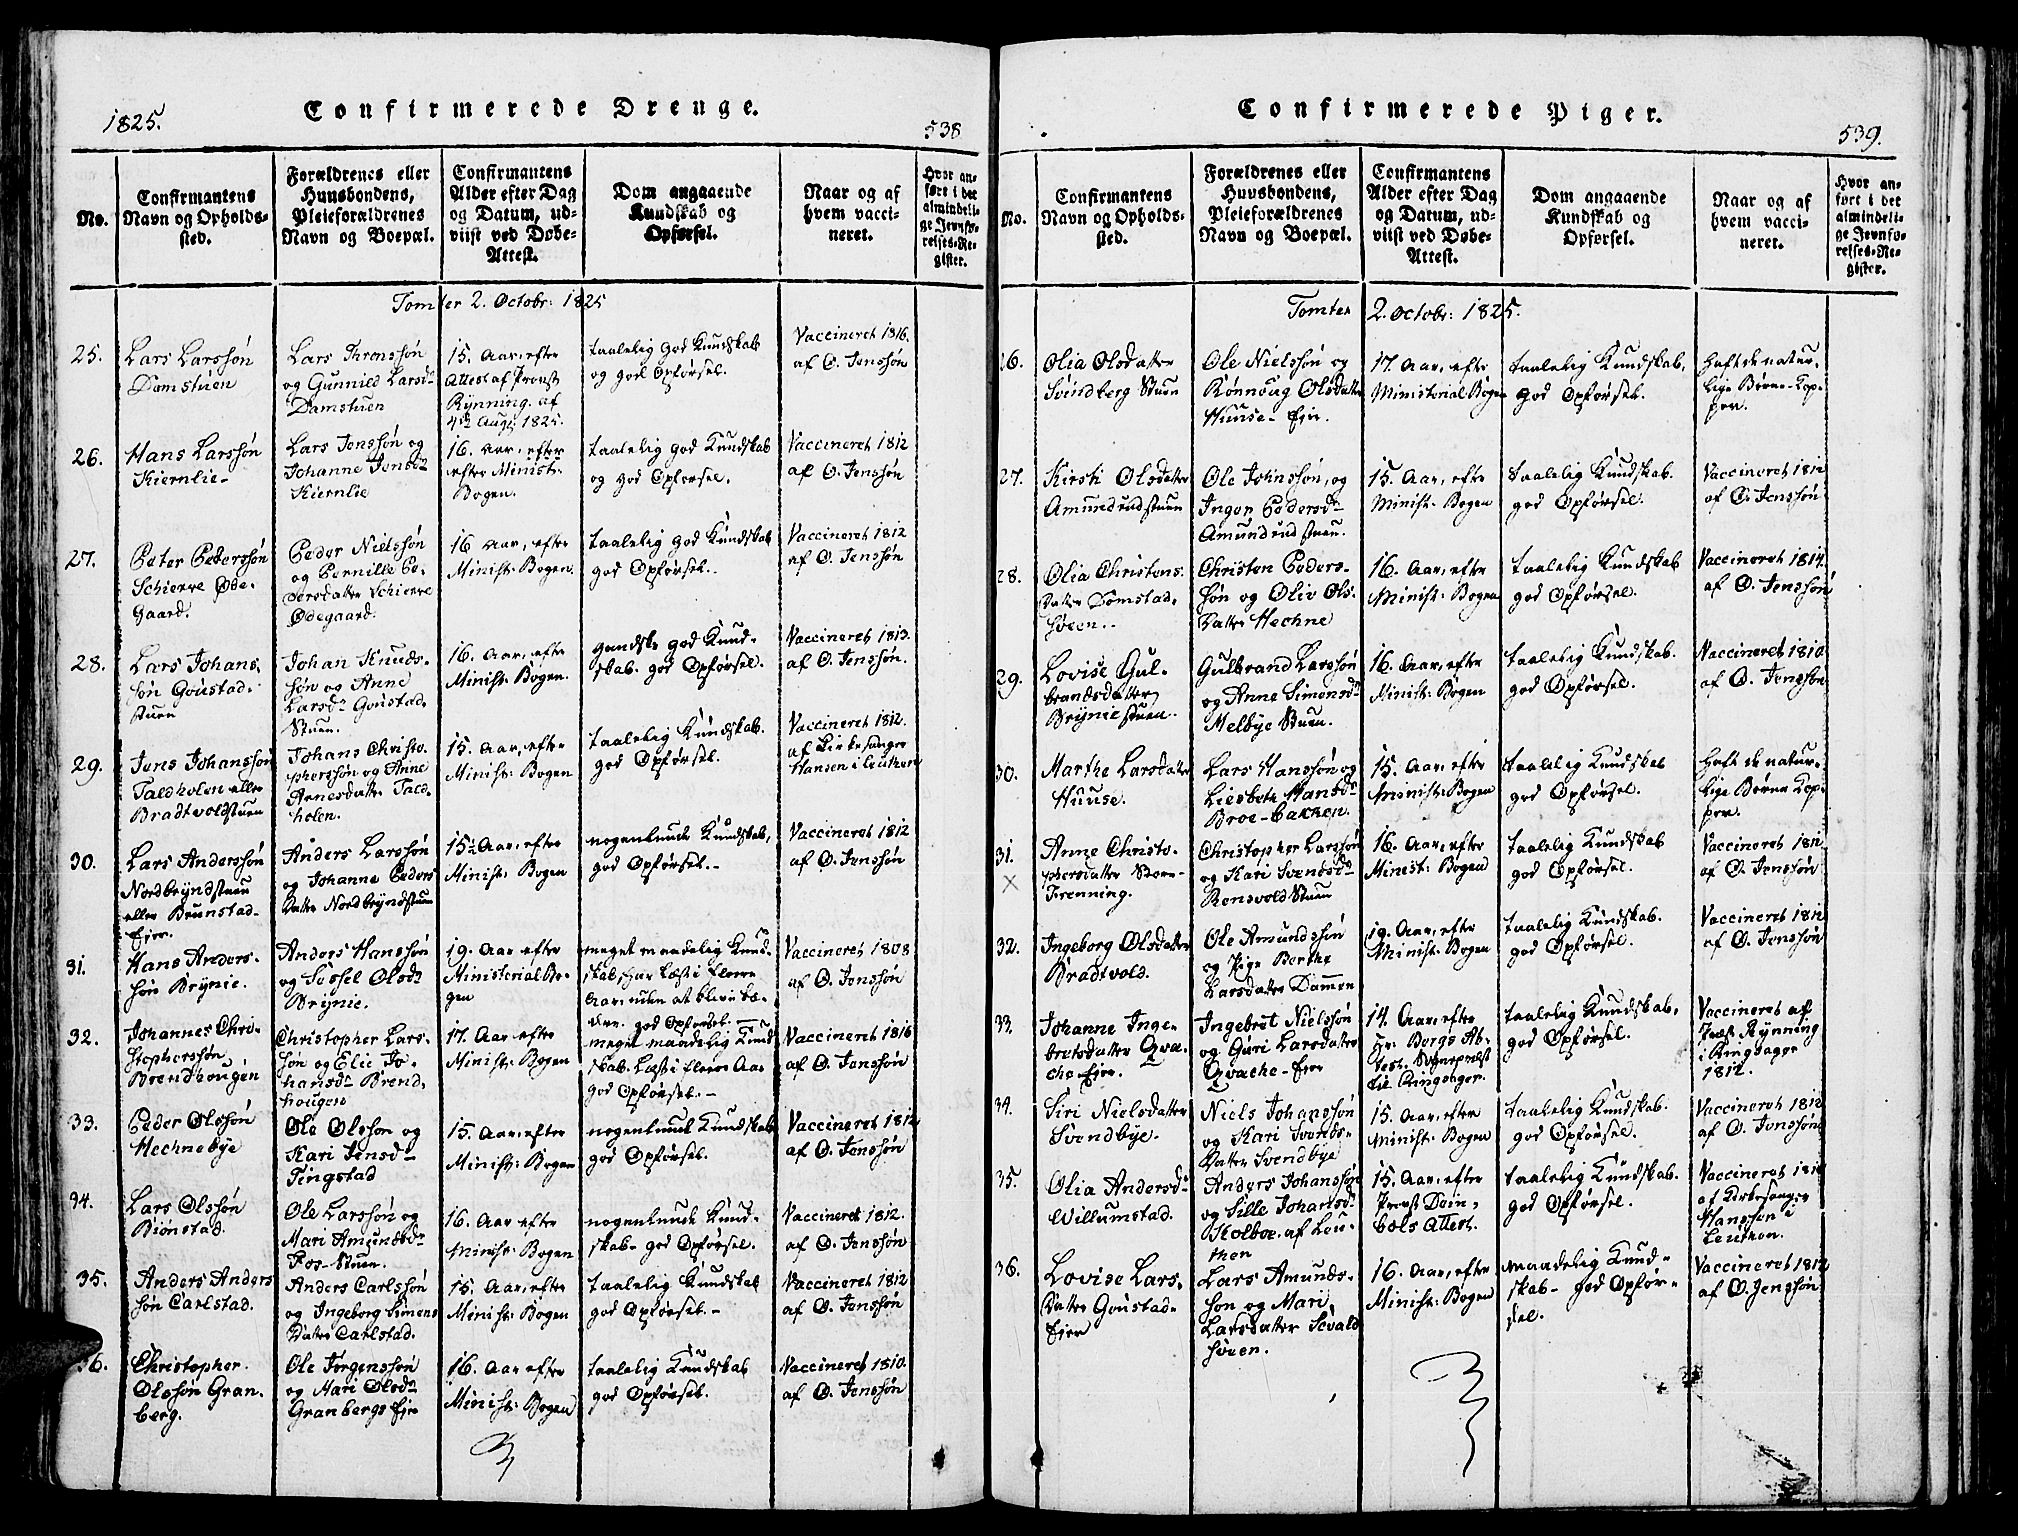 1825.
Confirmerede Drenge.
538
No.
Confirmantens
Navn og Opholds-
sted.
Forældrenes eller
Huusbondens,
Pleieforældrenes
Navn og Boepæl.
Confirmantens
Alder efter Dag
og Datum, ud-
viist ved Døbe-
Attest.
Dom angaaende
Kundskab og
Opførsel.
Naar og af
hvem vacci-
neret.
Hvor an-
ført i det
almindeli-
ge Jevnfø-
relses-Re-
gister.
Tomter 2. Octobr: 1825
25.
Lars Larssøn
Damstuen
Lars Thronssøn
og Gunnild Larsd.
Damstuen
15. Aar, efter
Attest af Provst
Rynning. af
4de Aug: 1825.
taalelig god Kundskab
og god Opførsel.
Vaccineret 1816.
af O. Jenssøn
26.
Hans Larssøn
Kiernlie-
Lars Jenssøn og
Johanne Jensd.
Kiernlie
16. Aar, efter
efter Minist:
Bogen.
taalelig god Kundskab
og god Opførsel.
Vaccineret 1812
af O. Jenssøn
27.
Peter Pederssøn
Schierre Øde-
gaard.
Peder Nielssøn
og Pernille Pe-
dersdatter Schierre
Ødegaard.
16 Aar, efter
Minist: Bogen.
taalelig god Kundskab
god Opførsel.-
Vaccineret 1812
af O. Jenssøn
28.
Lars Johans-
søn Goustad-
stuen
Johan Knuds-
søn og Anne
Larsd. Goustad-
Stuen.
16. Aar, efter
Minist: Bogen.
gandske god Kund-
skab. god Opførsel.
Vaccineret 1813.
af O. Jenssøn.
29.
Jens Johanssøn
Taldholen eller
Bradtvoldstuen
Johans Christo-
pherssøn og Anne
Arnesdatter Tald-
holen.
15. Aar, efter
Minist: Bogen
taalelig Kundskab.
god Opførsel.
Vaccineret 1812.
af Kirkesanger
Hansen i Leuthen
30.
Lars Anderssøn
Nordbryndstuen
eller Brunstad-
Eier.
Anders Larssøn
og Johanne Peders
datter Nordbryndstuen
15½ Aar, efter
Minist: Bogen
nogenlunde Kundskab,
god Opførsel.-
Vaccineret 1812
af O. Jenssøn
31.
Hans Anders-
søn Brynie.
Anders Hanssøn
og Sussel Olsd.
Brynie.
19. Aar efter
Ministerial Bo-
gen
meget maadelig Kund-
skab, har læst i flere
Aar, uden at blive bæ-
dre. god Opførsel.-
Vaccineret 1808
af O. Jenssøn
32.
Johannes Chri-
stopherssøn
Brendhougen
Christopher Lars-
søn og Elie Jo-
hansd. Brend-
hougen
17. Aar efter
Minist: Bogen
meget maadelig Kund
skab. læst i flere Aar
god Opførsel.-
Vaccineret 1816
af O. Jenssøn
33.
Peder Olssøn
Hechnebye
Ole Olsson og
Kari Jensd-
Tingstad
15. Aar, efter
Minist: Bogen
nogenlunde Kundskab
god Opførsel.
Vaccineret 1812
af O. Jenssøn
34.
Lars Olssøn
Biønstad.
Ole Larssøn og
Mari Amundsd.
Fos-Stuen.
16. Aar efter
Minist: Bogen
nogenlunde Kund-
skab- god Opførsel.
Vaccineret 1812.
af O. Jenssøn
35.
Anders Anders
søn Carlstad.
Anders Carlssøn
og Ingeborg Simens
datter Carlstad.
15. Aar, efter
Minist: Bogen
taalelig Kundskab
god Opførsel.-
Vaccineret 1812
af O. Jenssøn
36.
Christopher
Olssøn Gran-
berg.
Ole Jørgenssøn
og Mari Olsd.
Granbergs Eje
16. Aar efter
Minist: Bogen
taalelig Kundskab
god Opførsel.
Vaccineret 1810.
af O. Jenssøn
Confirmerede Piger.
539.
No.
Confirmantens
Navn og Opholds-
sted.
Forældrenes eller
Huusbondens,
Pleieforældrenes
Navn og Boepæl.
Confirmantens
Alder efter Dag
og Datum, ud-
viist ved Døbe-
Attest.
Dom angaaende
Kundskab og
Opførsel.
Naar og af
hvem vacci-
neret.
Hvor an-
ført i det
almindeli-
ge Jevnfø-
relses-Re-
gister.
Tomter 2. Octobr: 1825.
26.
Olia Olsdatter
Svindberg Stuen
Ole Nielssøn og
Rønnoug Olsdatter
Huuse- Eje.
17. Aar, efter
Ministerial Bogen
taalelig Kundskab,
god Opførsel.
Haft de natur-
lige Børne-Kop-
per.
27.
Kirsti Olsdatter
Amundrudstuen
Ole Johnssøn, og
Inger Pedersd.
Amundrudstuen.
15. Aar, efter
Minist: Bogen
taalelig Kundskab.
god Opførsel.
Vaccineret 1812
af O. Jenssøn
28.
Olia Christens-
datter Domstad-
søeen..
Christen Peders-
søn og Oliv Ols-
datter Hechne
16. Aar, efter
Minist: Bogen
taalelig Kundskab
god Opførsel.
Vaccineret 1814.
af O. Jenssøn
29.
Lovise Gul-
brandsdatter
Brynie stuen..
Gulbrand Larssøn
og Anne Simensd.
Melbye Stuen.
16. Aar, efter
Minist: Bogen
taalelig Kundskab.
god Opførsel.
Vaccineret 1810
af O. Jenssøn
30.
Marthe Larsdatter
Huuse.
Lars Hanssøn og
Liesbeth Hansd.
Broe-bakken.
15. Aar, efter
Minist: Bogen
taalelig Kundskab
god Opførsel.
Haft de natur-
lige Børne Kop-
per.
31.
×
Anne Christo-
phersdatter Store-
Frenning.
Christopher Larssøn
og Kari Svendsd.
Rensvold Stuen
16. Aar, efter
Minist: Bogen
taalelig Kundskab
god Opførsel.
Vaccineret 1812
af O. Jenssøn
32.
Ingeborg Olsdatter
Bradtvold.
Ole Amundssøn
og Pige Berthe
Larsdatter Dammen
19. Aar, efter
Minist: Bogen
taalelig Kundskab.
god Opførsel.
Vaccineret 1812
af O. Jenssøn
33.
Johanne Inge-
bretsdatter Qvæ-
che Eier.
Ingebret Nielssøn
og Guri Larsdatter
Qvæche-Eier
14. Aar, efter
Hr. Borgs At-
test. Sognepræst
til Ringsager.
taalelig Kundskab,
god Opførsel.
Vaccineret af
Præst Rynning
i Ringsager
1812.
34.
Siri Nielsdatter
Svendbye.
Niels Johanssøn
og Kari Svends-
datter Svendbye
15. Aar, efter
Minist: Bogen
taalelig Kundskab.
god Opførsel.
Vaccineret 1812
af O. Jenssøn
35.
Olia Andersd.
Willumstad.
Anders Johanssøn
og Sille Johansd.
Holboe. af Leu-
then
15. Aar, efter
Provst Dein-
bols Attest.
taalelig Kundskab.
god Opførsel.
Vaccineret 181
af Kirkesanger
Hanssøn i
Leuthen.
36.
Lovise Lars-
datter Goustad-
Eier
Lars Amunds-
søn og Mari
Larsdatter Sevald
søeen.
16. Aar, efter
Minist: Bogen
maadelig Kund-
skab- god Opfør-
sel.
Vaccineret 1812
af O. Jenssøn